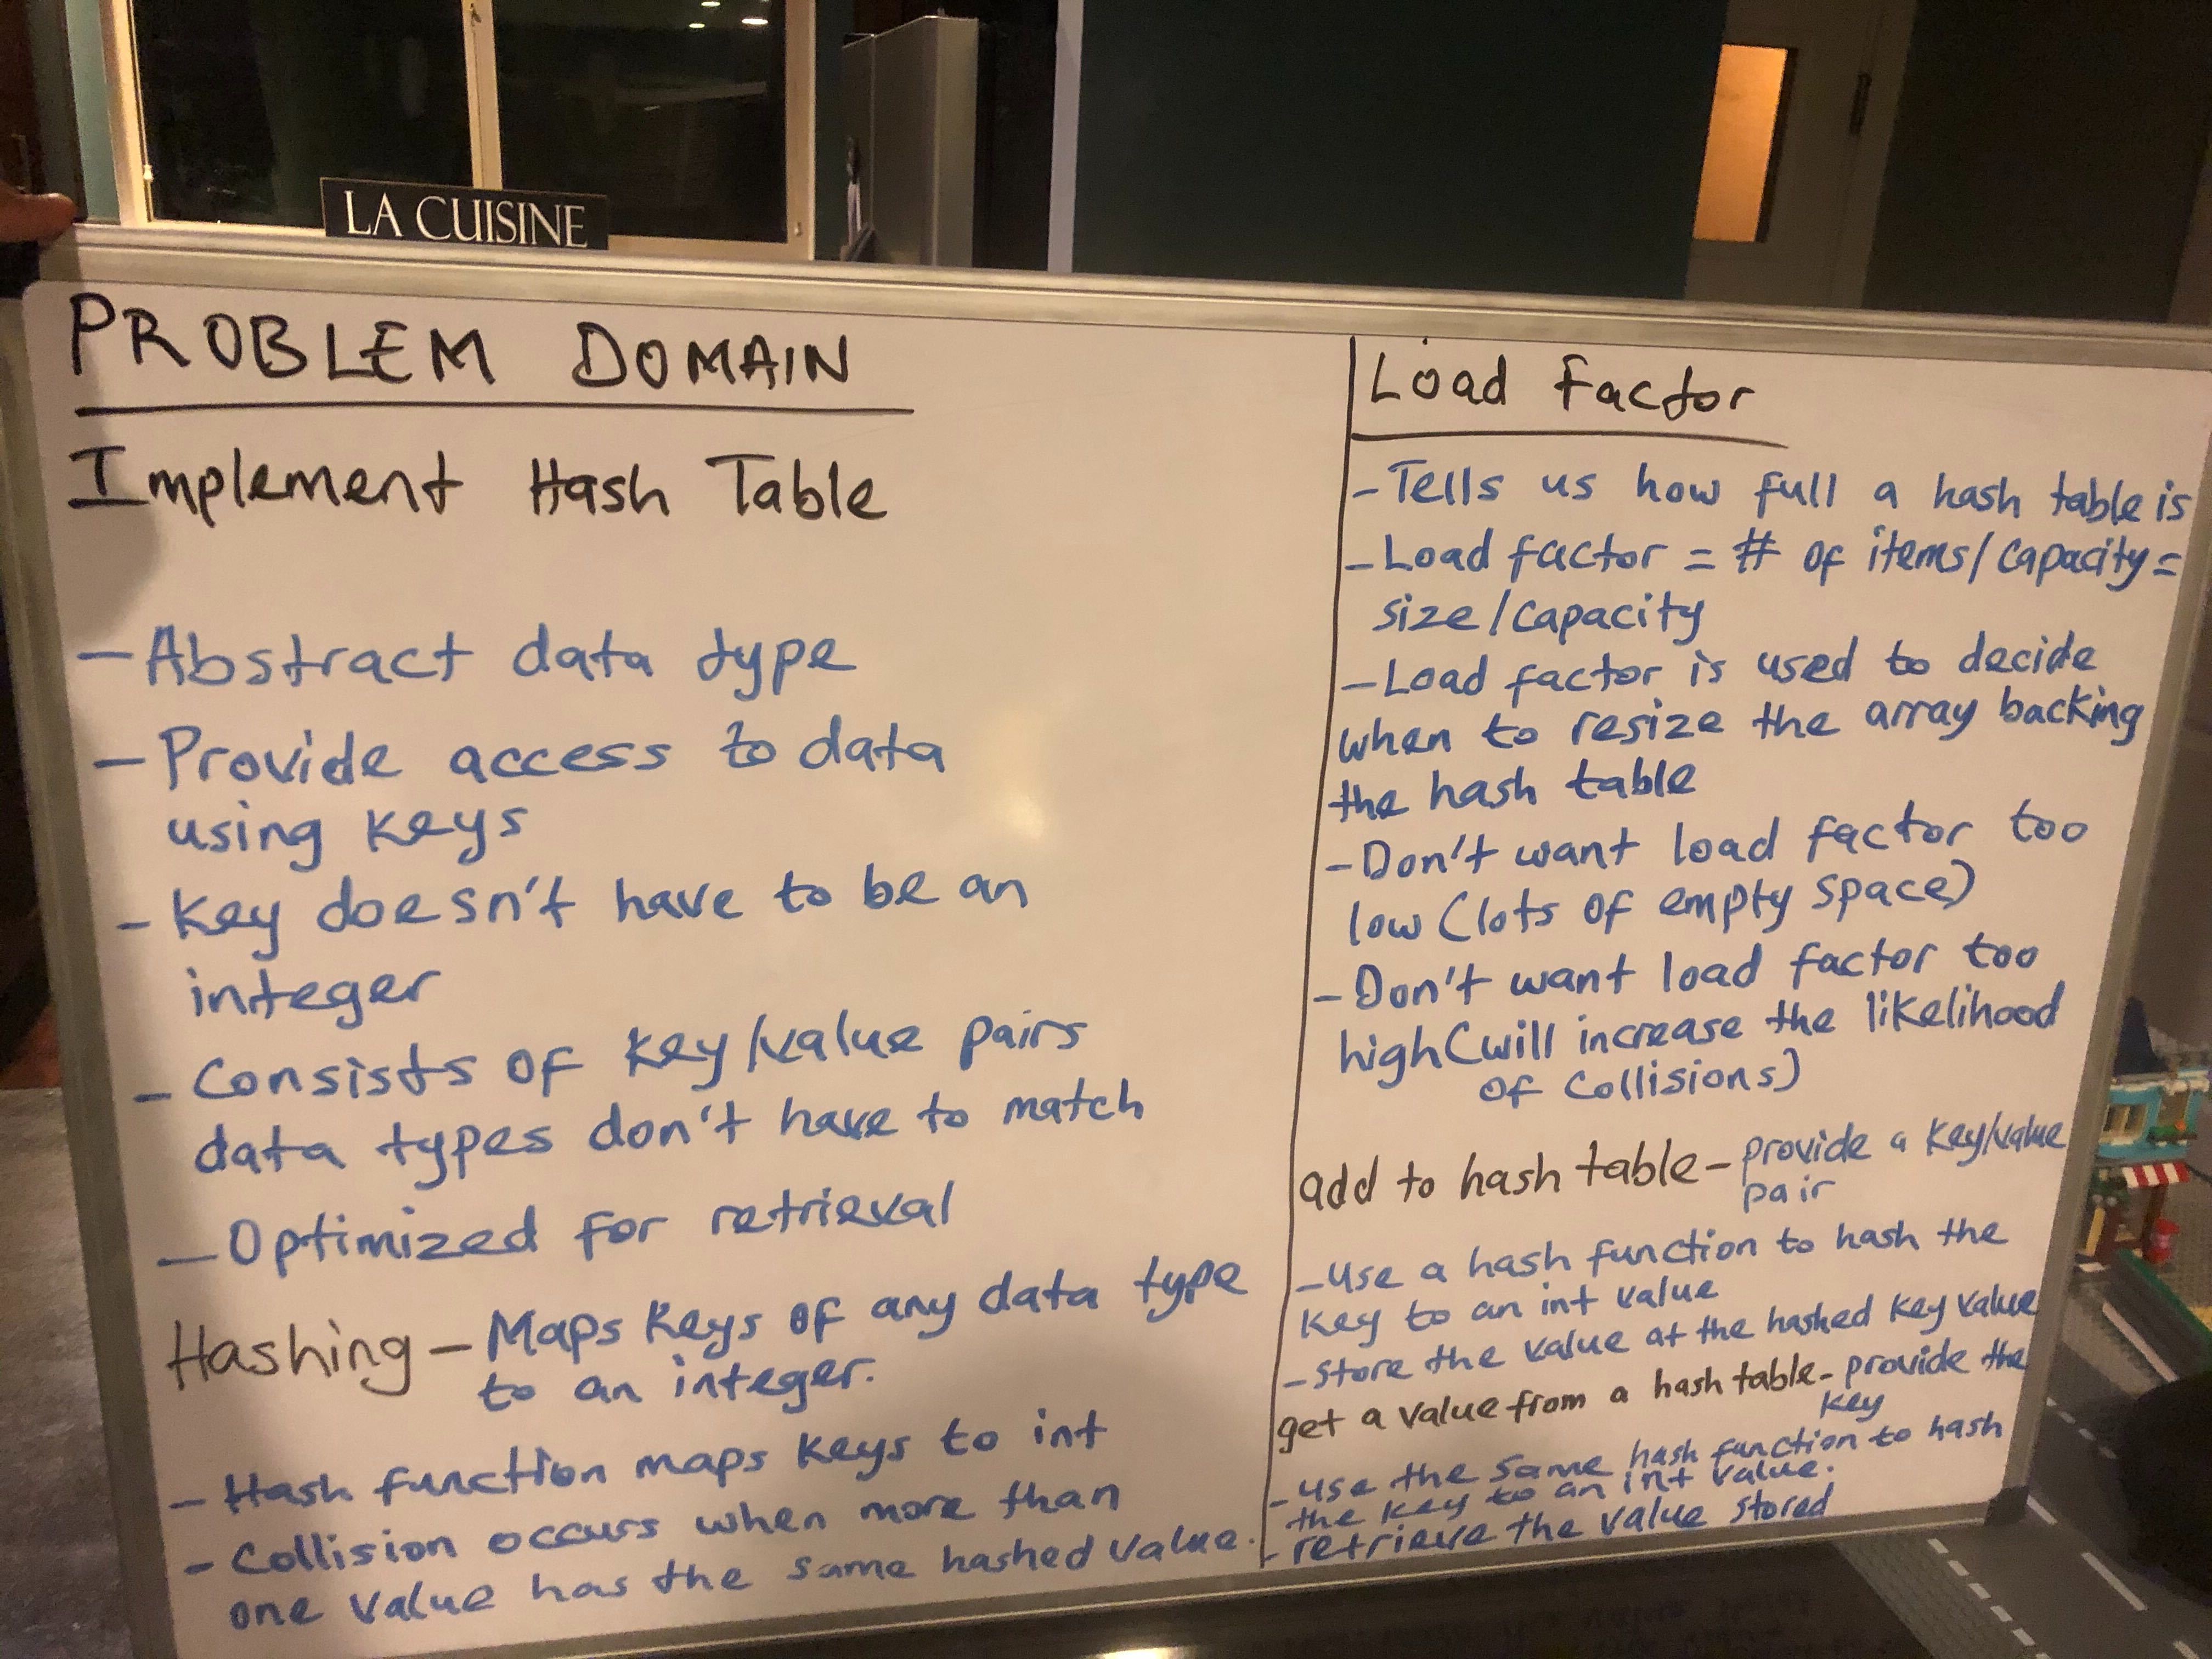 LA CUISINE
PROBLEM DOMAIN
Implement Hash Table
- Abstract data type
- Provide access to data
using keys
- Key doesn't have to be an
integer
- Consists of key/value pairs
data types don't have to match
- Optimized for retrieval
Hashing - Maps keys of any data type
to an integer.
- Hash function maps keys to int
- Collision occurs when more than
one value has the same hashed value.
Load Factor
- Tells us how full a hash table is
- Load factor = # of items/capacity =
size/capacity
- Load factor is used to decide
when to resize the array backing
the hash table
- Don't want load factor too
low (lots of empty space)
- Don't want load factor too
high (will increase the likelihood
of collisions)
add to hash table - provide a key/value
pair
- use a hash function to hash the
key to an int value
- store the value at the hashed key value
get a value from a hash table - provide the
key
- use the same hash function to hash
the key to an int value.
- retrieve the value stored